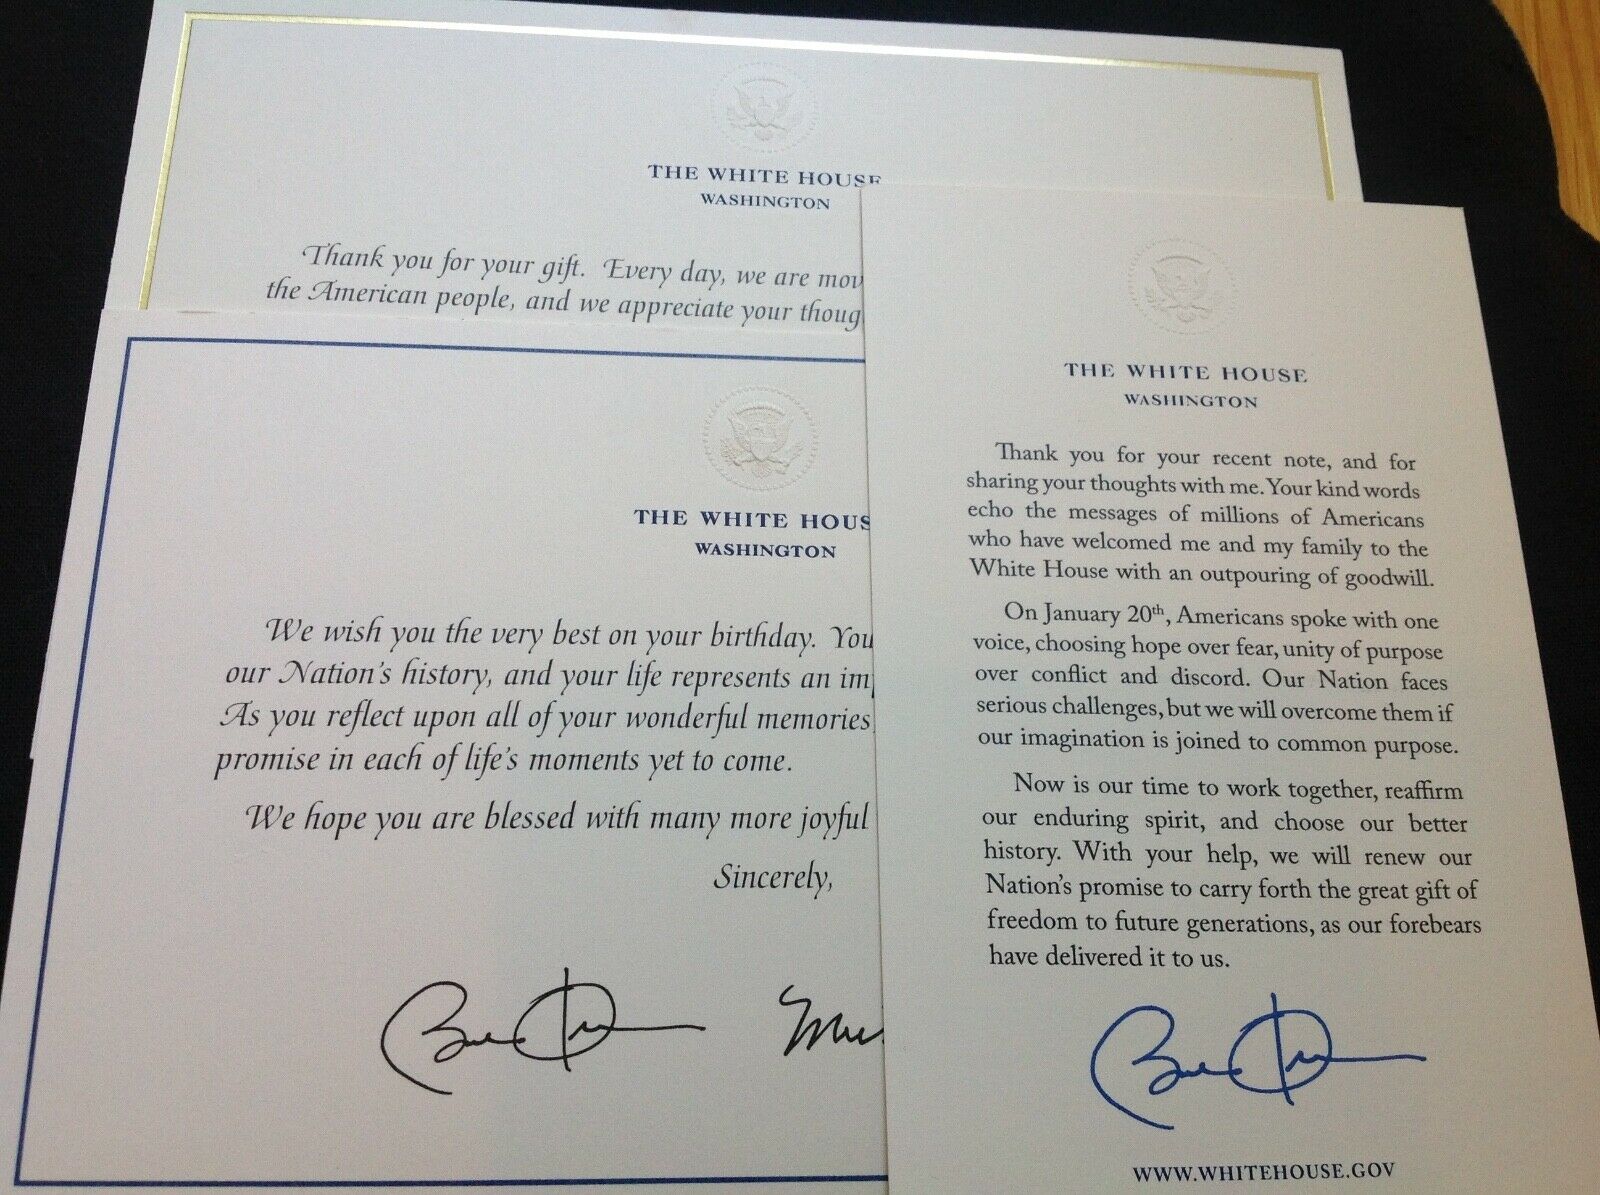 THE WHITE HOUSE
WASHINGTON
Thank you for your gift. Every day, we are
the American people, and we appreciate your
THE WHITE
WASHINGTON
We wish you the very best on your birthday.
our Nation's history, and your life represents an
As you reflect upon all of your wonderful memories
promise in each of life's moments yet to come.
We hope you are blessed with many more joyful
Sincerely,
THE WHITE HOUSE
WASHINGTON
Thank you for your recent note, and for
sharing your thoughts with me. Your kind words
echo the messages of millions of Americans
who have welcomed me and my family to the
White House with an outpouring of goodwill.
On January 20th, Americans spoke with one
voice, choosing hope over fear, unity of purpose
over conflict and discord. Our Nation faces
serious challenges, but we will overcome them if
our imagination is joined to common purpose.
Now is our time to work together, reaffirm
our enduring spirit, and choose our better
history. With your help, we will renew our
Nation's promise to carry forth the great gift of
freedom to future generations, as our forebears
have delivered it to us.
WWW.WHITEHOUSE.GOV